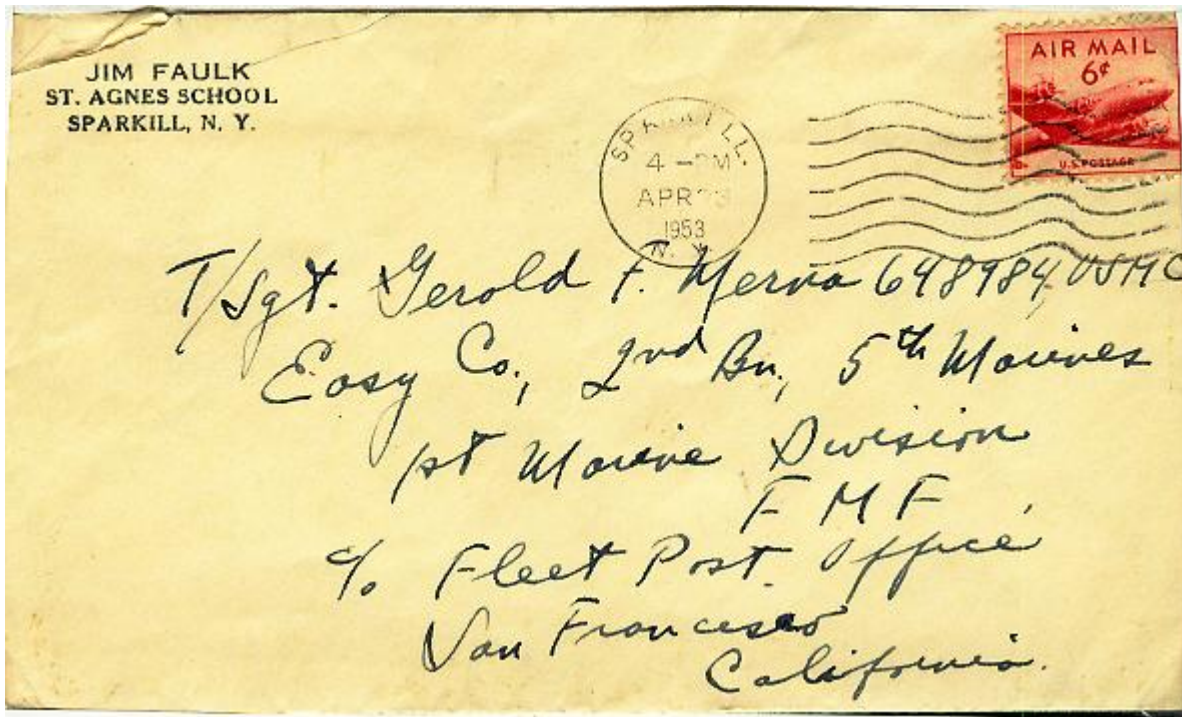 JIM FAULK
ST. AGNES SCHOOL
SPARKILL, N. Y.
AIR MAIL
6¢
U.S. POSTAGE
4 - PM
APR
1953
N. Y.
T/Sgt. Gerold F. Merna 648984, USMC
Easy Co., 2nd Bn., 5th Marines
1st Marine Division
F M F
c/o Fleet Post Office
San Francisco
California.